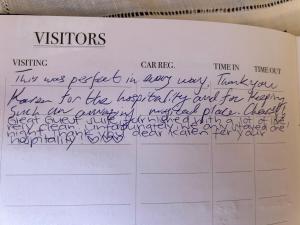 VISITORS
VISITING CAR REG. TIME IN TIME OUT
This was perfect in every way. Thank you
Karen for the hospitality and for keeping
such an amazing place.
Great Guest suite furnished with a lot of
clean. Unfortunately, we only stayed one
night. Thank you dear Karen for your
hospitality ♡♡♡